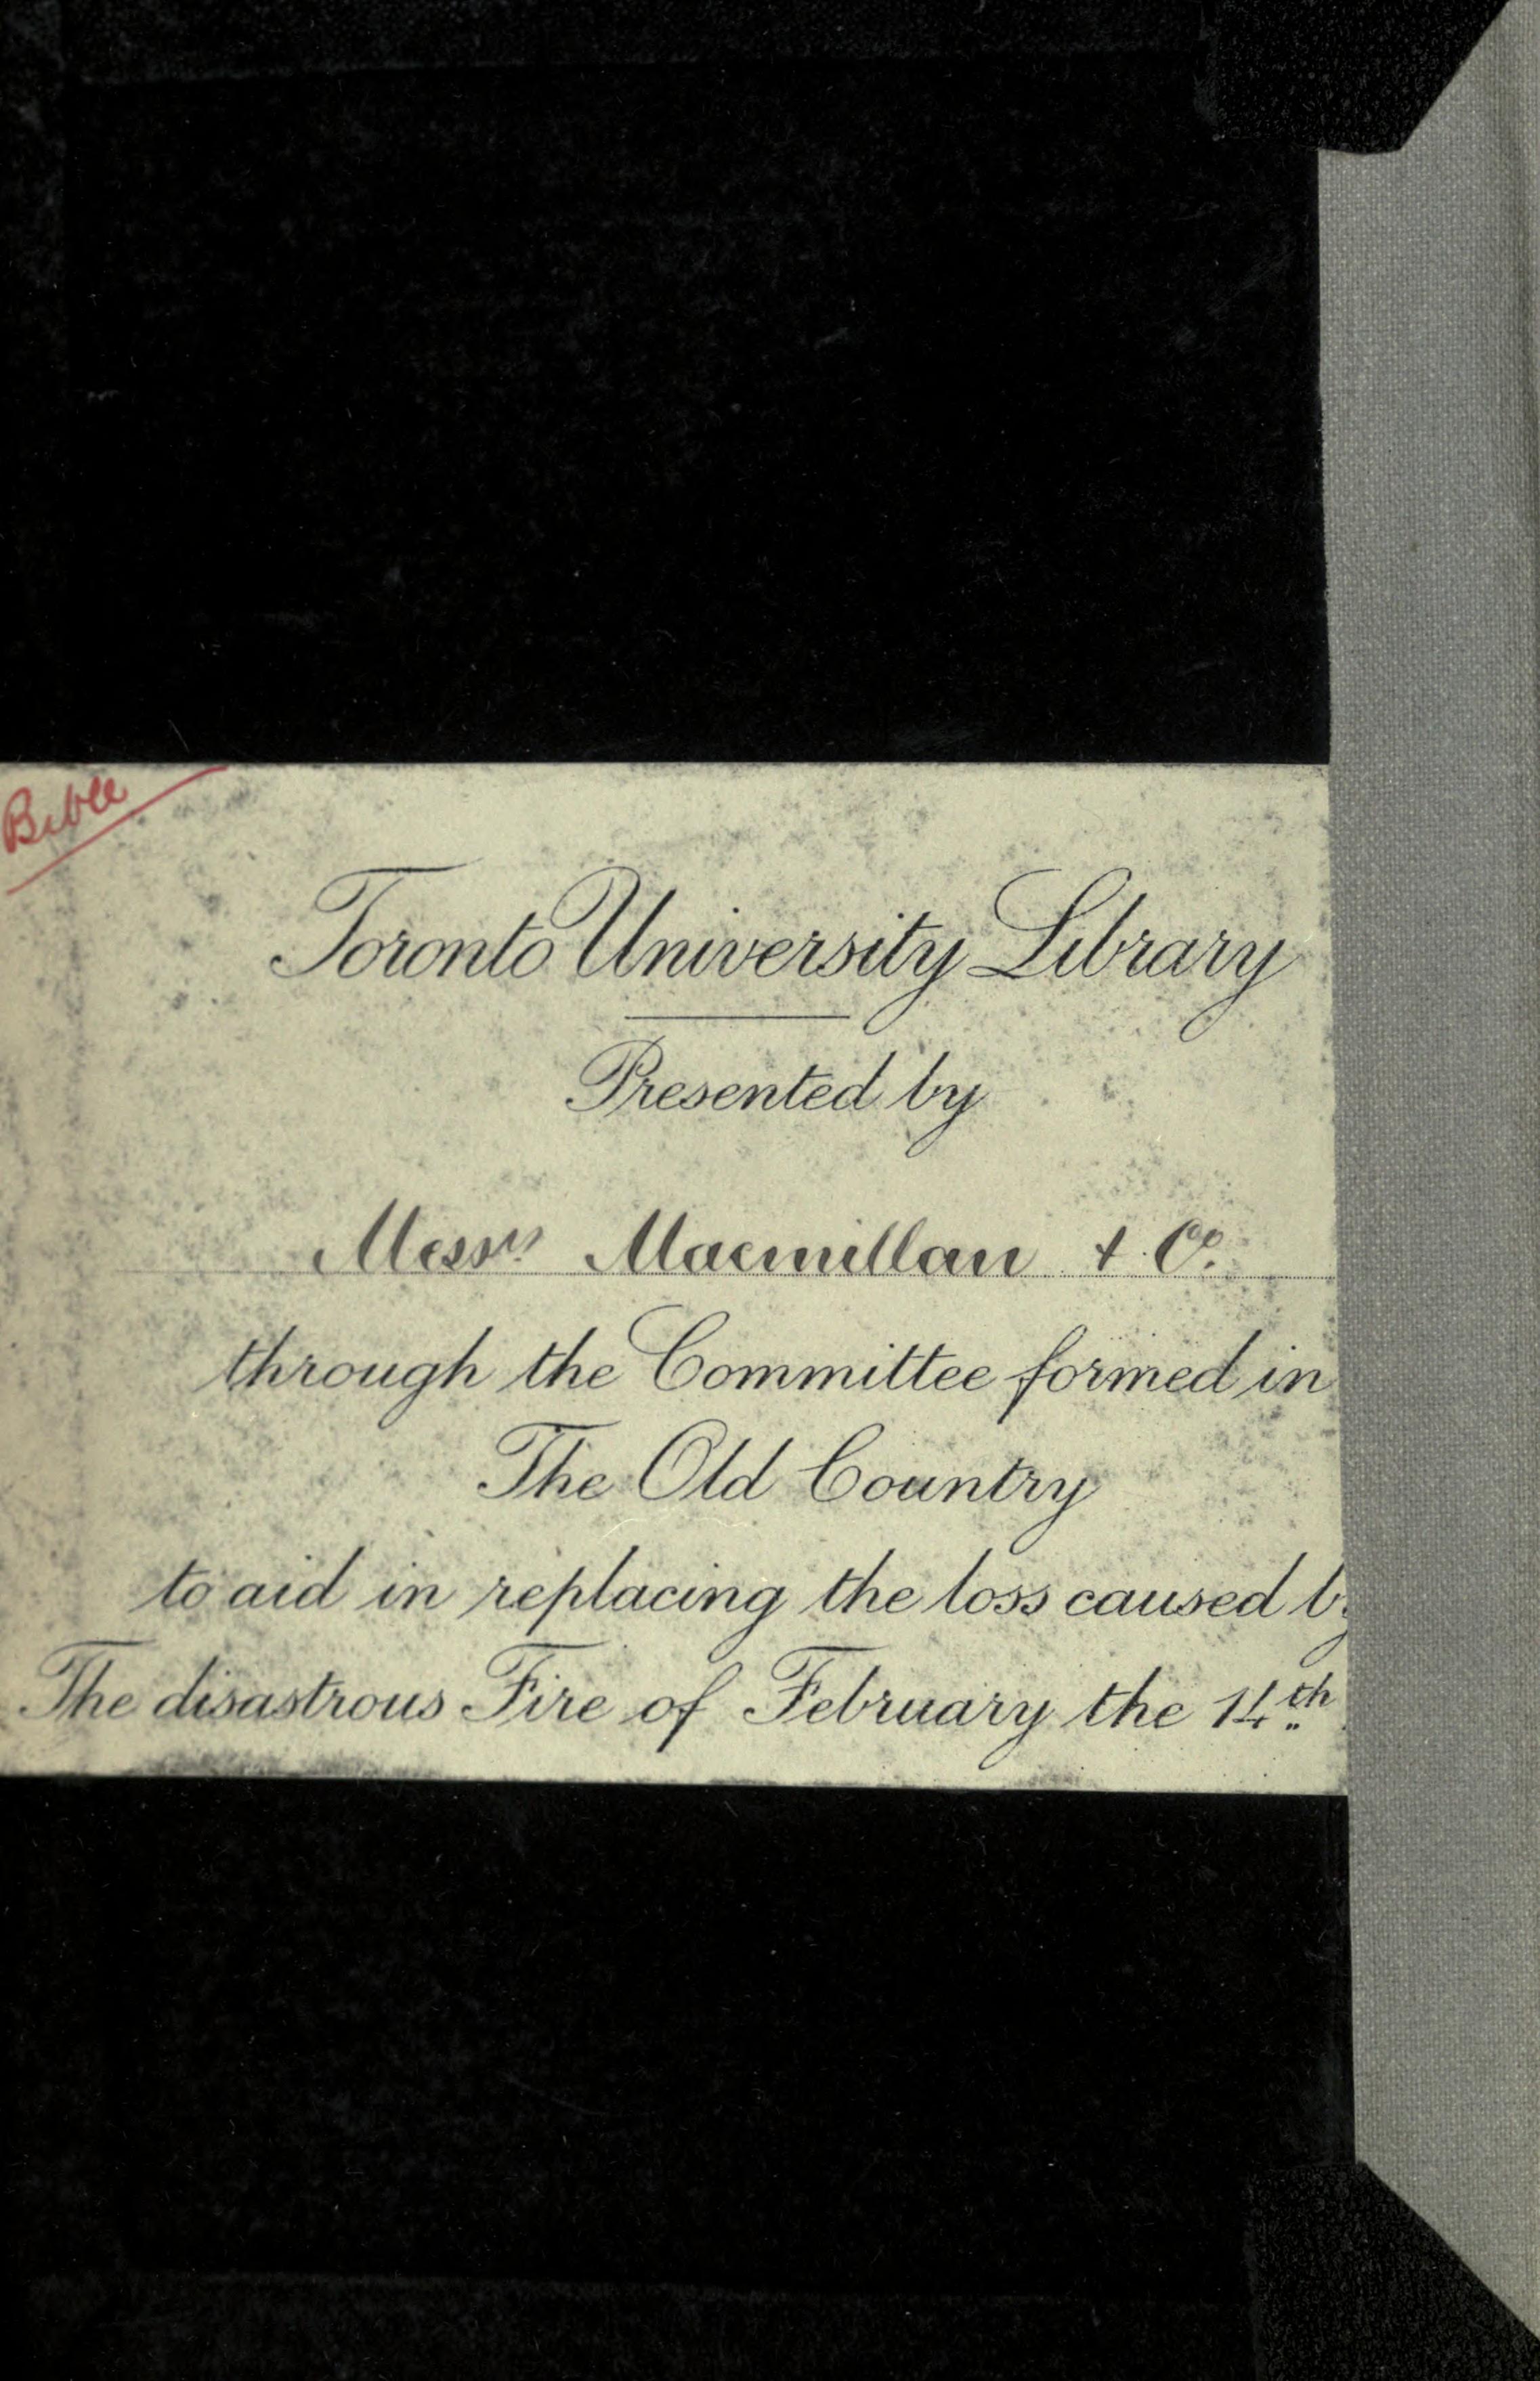 Bible
Toronto University Library
Presented by
Messrs Macmillan & Co.
through the Committee formed in
The Old Country
to aid in replacing the loss caused by
The disastrous Fire of February the 14th